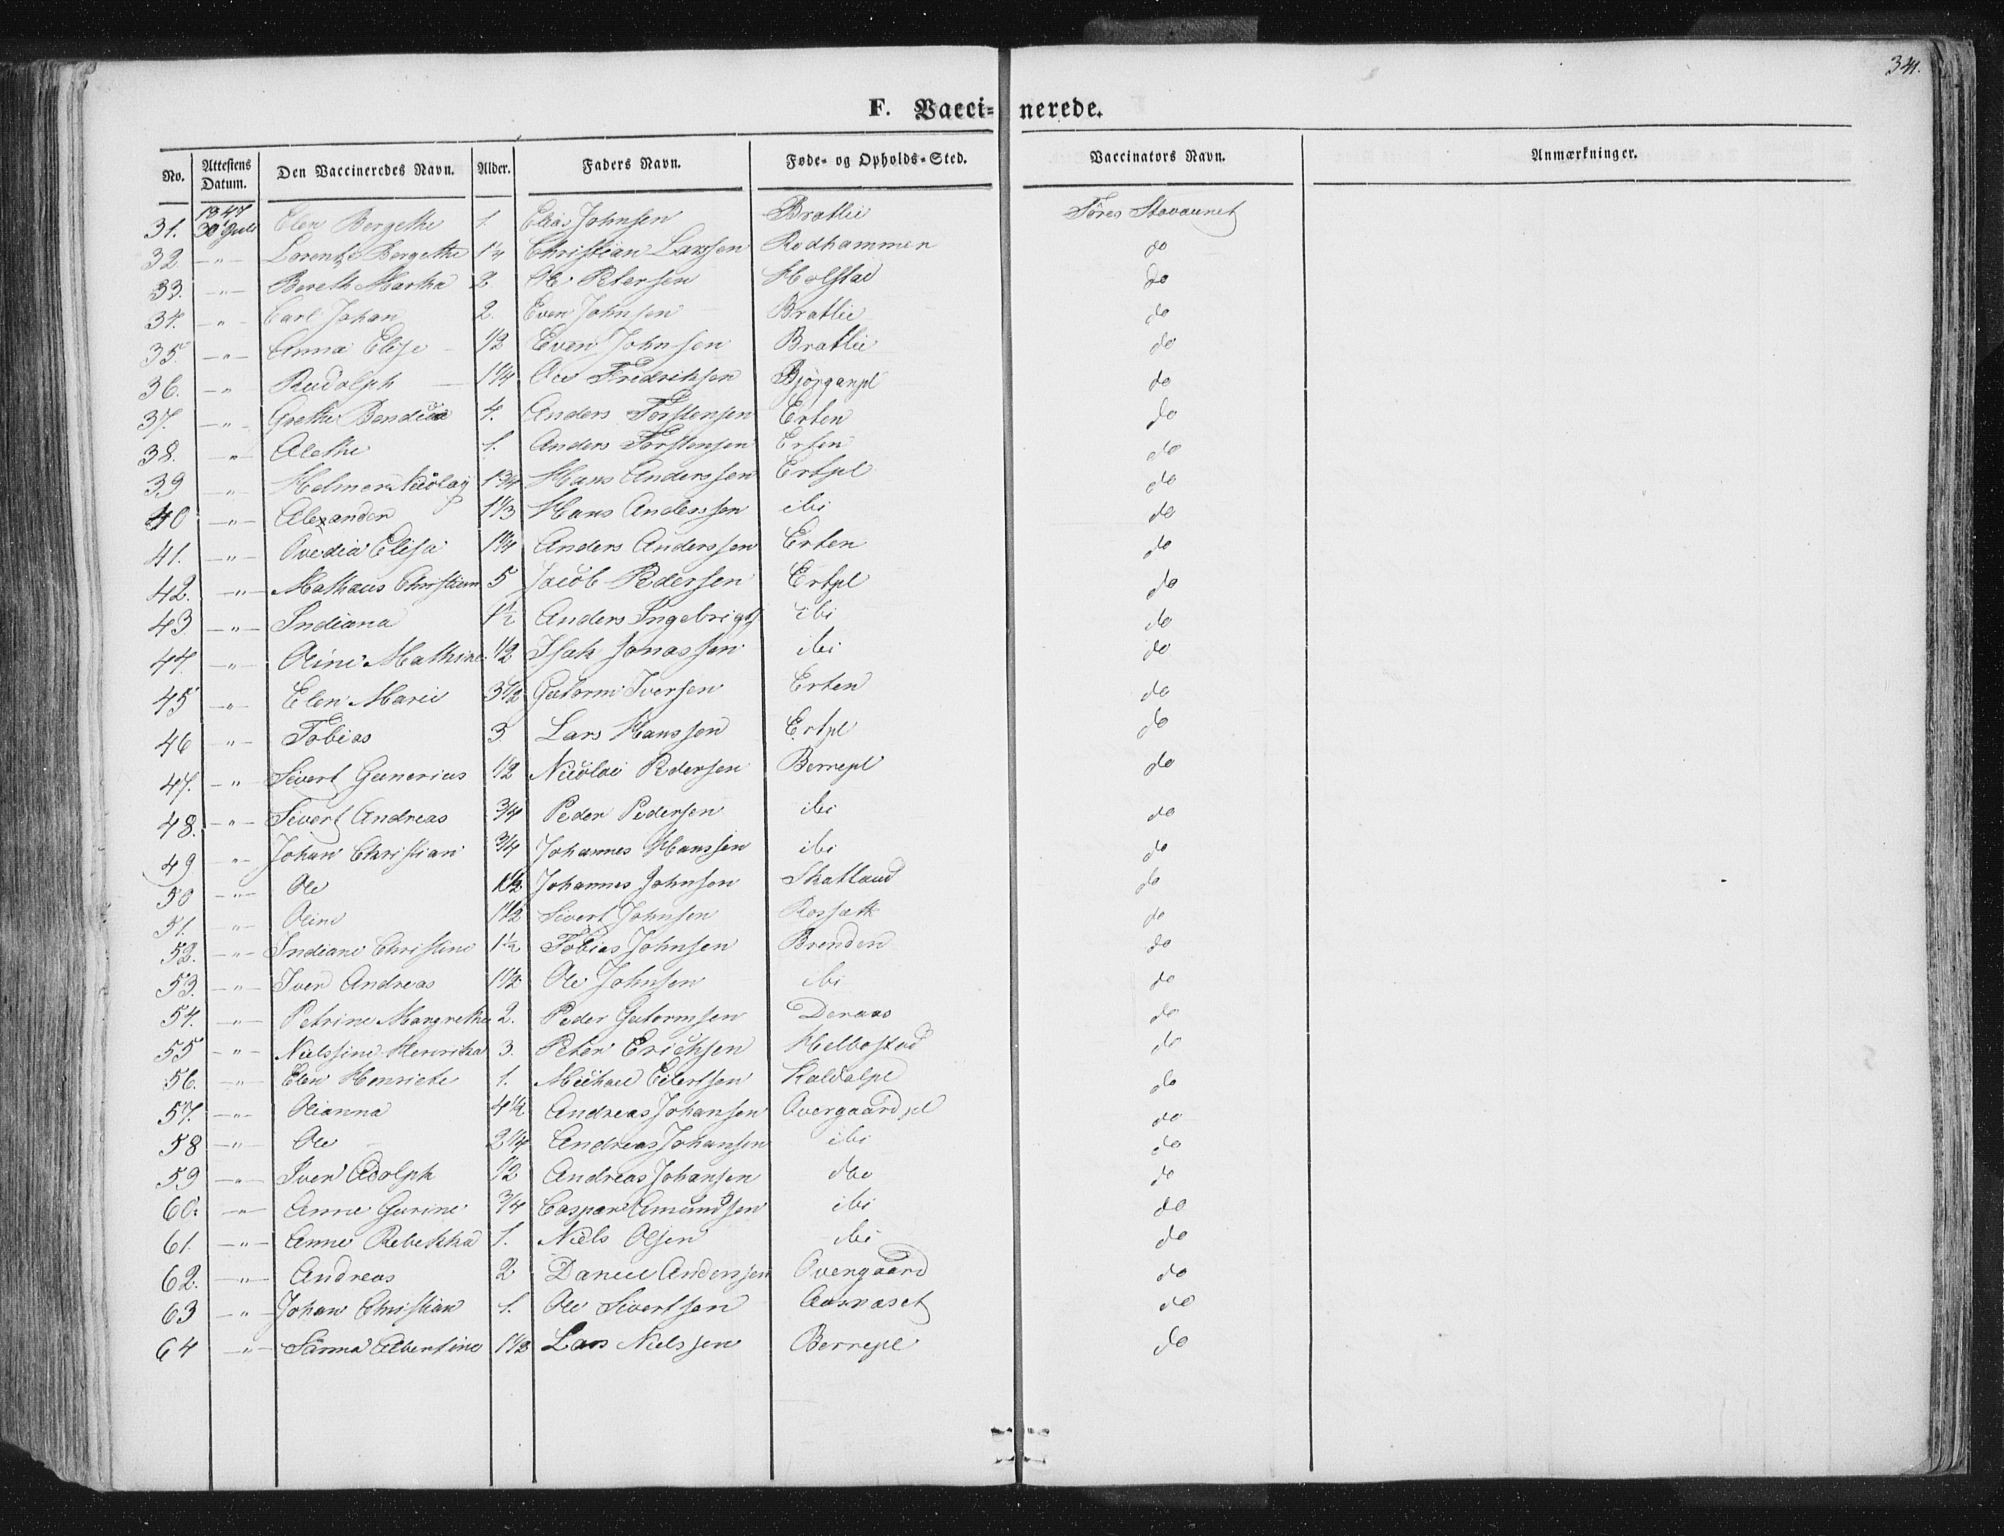 341.
F. Vaccinerede.
No. Attestens Datum. Den Vaccineredes Navn. Alder. Faders Navn. Føde- og Opholds-Sted. Vaccinators Navn. Anmærkninger.
1847
31. 30 Juli Elen Bergethe 1. Elias Johnsen Bratlie Töres Stavaunet
32 —"— Lorentze Bergethe 1¼ Christian Larssen Rödhammen do
33. —"— Bereth Martha 2 Ole Petersen Holstad do
34. —"— Carl Johan 2. Even Johnsen Bratlie do
35 —"— Anna Elise ½ Even Johnsen Bratlie do
36. —"— Rudolph 1¼ Ole Fredriksen Bjørganpl do
37. —"— Grethe Bendica 4. Anders Torstensen Erten do
38. —"— Alethe 1. Anders Torstensen Erten do
39 —"— Helmer Nicolay 1¾ Hans Anderssen Ertpl do
40 —"— Alexander 1⅓ Hans Anderssen ibi do
41. —"— Ovedia Elisa 1¾ Anders Anderssen Erten do
42. —"— Mathæus Christian 5 Jacob Pedersen Ertpl do
43 —"— Indiana 1½ Anders Ingebrigts ibi do
44. —"— Oline Mathine ½ Isak Jonassen ibi do
45 —"— Elen Marie 3½ Gutorm Iversen Erten do
46 —"— Tobias 3 Lars Hanssen Ertpl do
47. —"— Sivert Gunerius ½ Nicolai Pedersen Berrepl do
48. —"— Sivert Andreas ¾ Peder Pedersen ibi do
49 —"— Johan Christian ¾ Johannes Hanssen ibi do
50 —"— Ole 1½ Johannes Johnsen Skatland do
51. —"— Oline 1½ Sivert Johnsen Rossætt do
52. —"— Indiane Christine 1½ Tobias Johnsen Brenden do
53. —"— Iver Andreas 1½ Ole Johnsen ibi do
54. —"— Petrine Margrethe 2. Peder Gutormsen Deraas do
55 —"— Nielsine Henrikka 3. Peter Erichsen Helbostad do
56. —"— Elen Henriette 1. Michael Eilertsen Kaldalpl do
57. —"— Olianna 4½ Andreas Johansen Overgaard pl do
58 —"— Ole 2¼ Andreas Johansen ibi do
59 —"— Iver Adolph ½ Andreas Johansen ibi do
60. —"— Anne Gurine ¾ Caspar Amundsen ibi do
61. —"— Anne Rebekka 1. Niels Olsen ibi do
62. —"— Andreas 2 Daniel Anderssen Overgaard do
63 —"— Johan Christian 1. Ole Sivertsen Aarnæset do
64 —"— Sanna Albertine 1½ Lars Nielssen Berrepl do